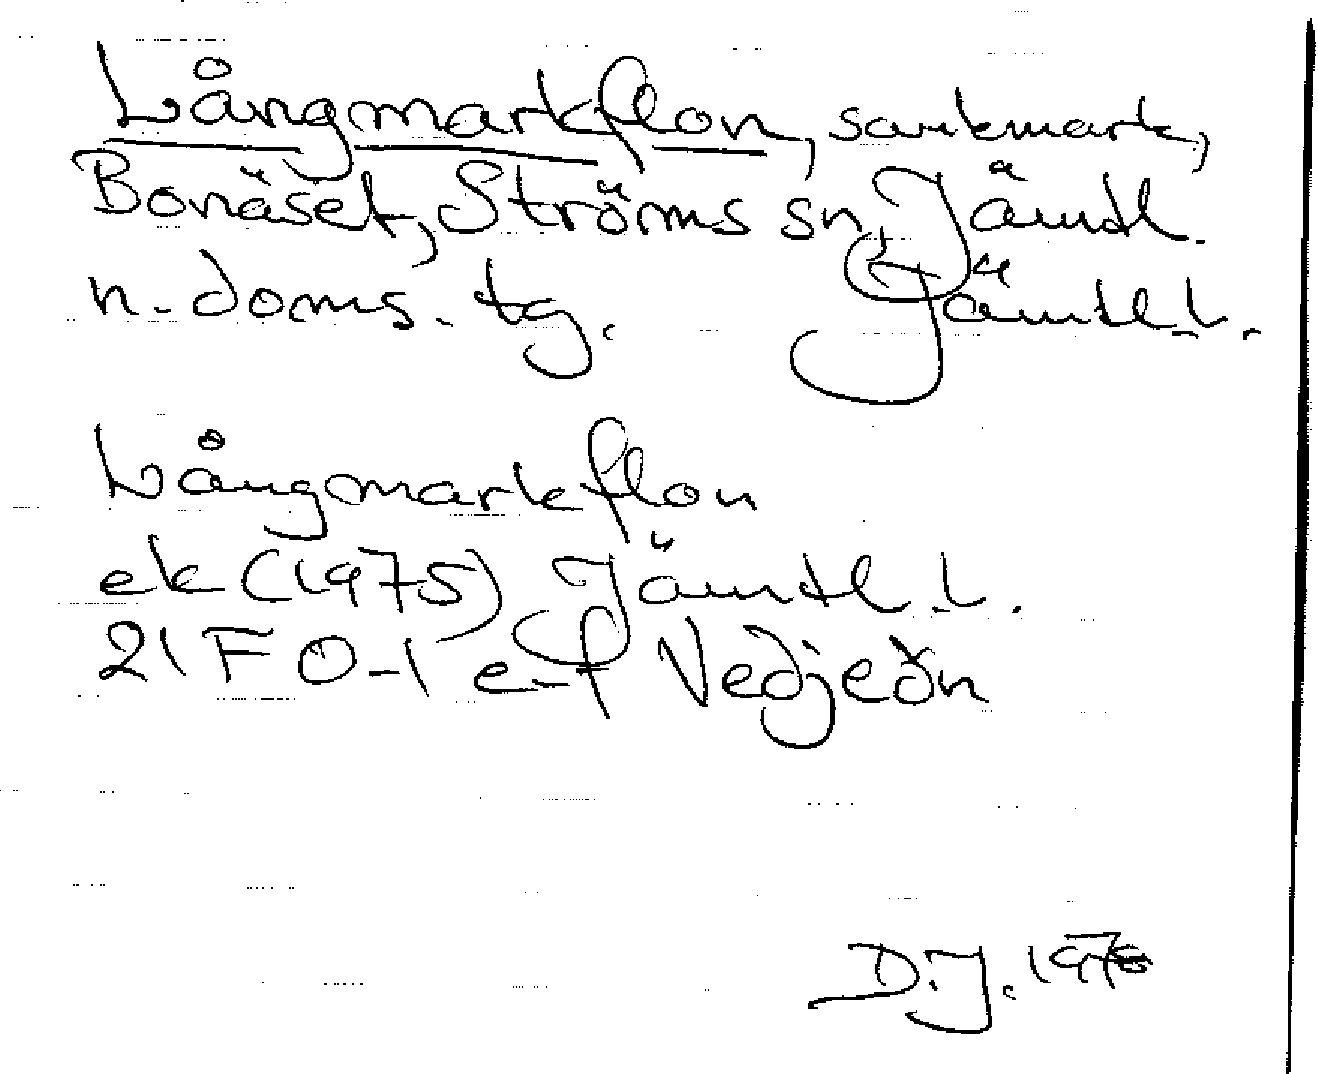 Långmarkflon, sankmark,
Bonäset, Ströms sn, Jämtl.
n. doms. tg. Jämtl. l.
Långmarkflon
ek (1975) Jämtl. l.
21F 0-1 e-f Vedjeön
D.J. 1976